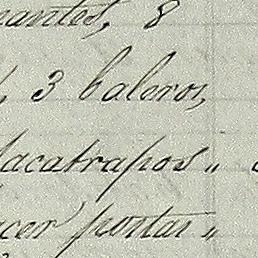 mantes, 8
, 3 baleros,
Sacatrapos „
acer portar „